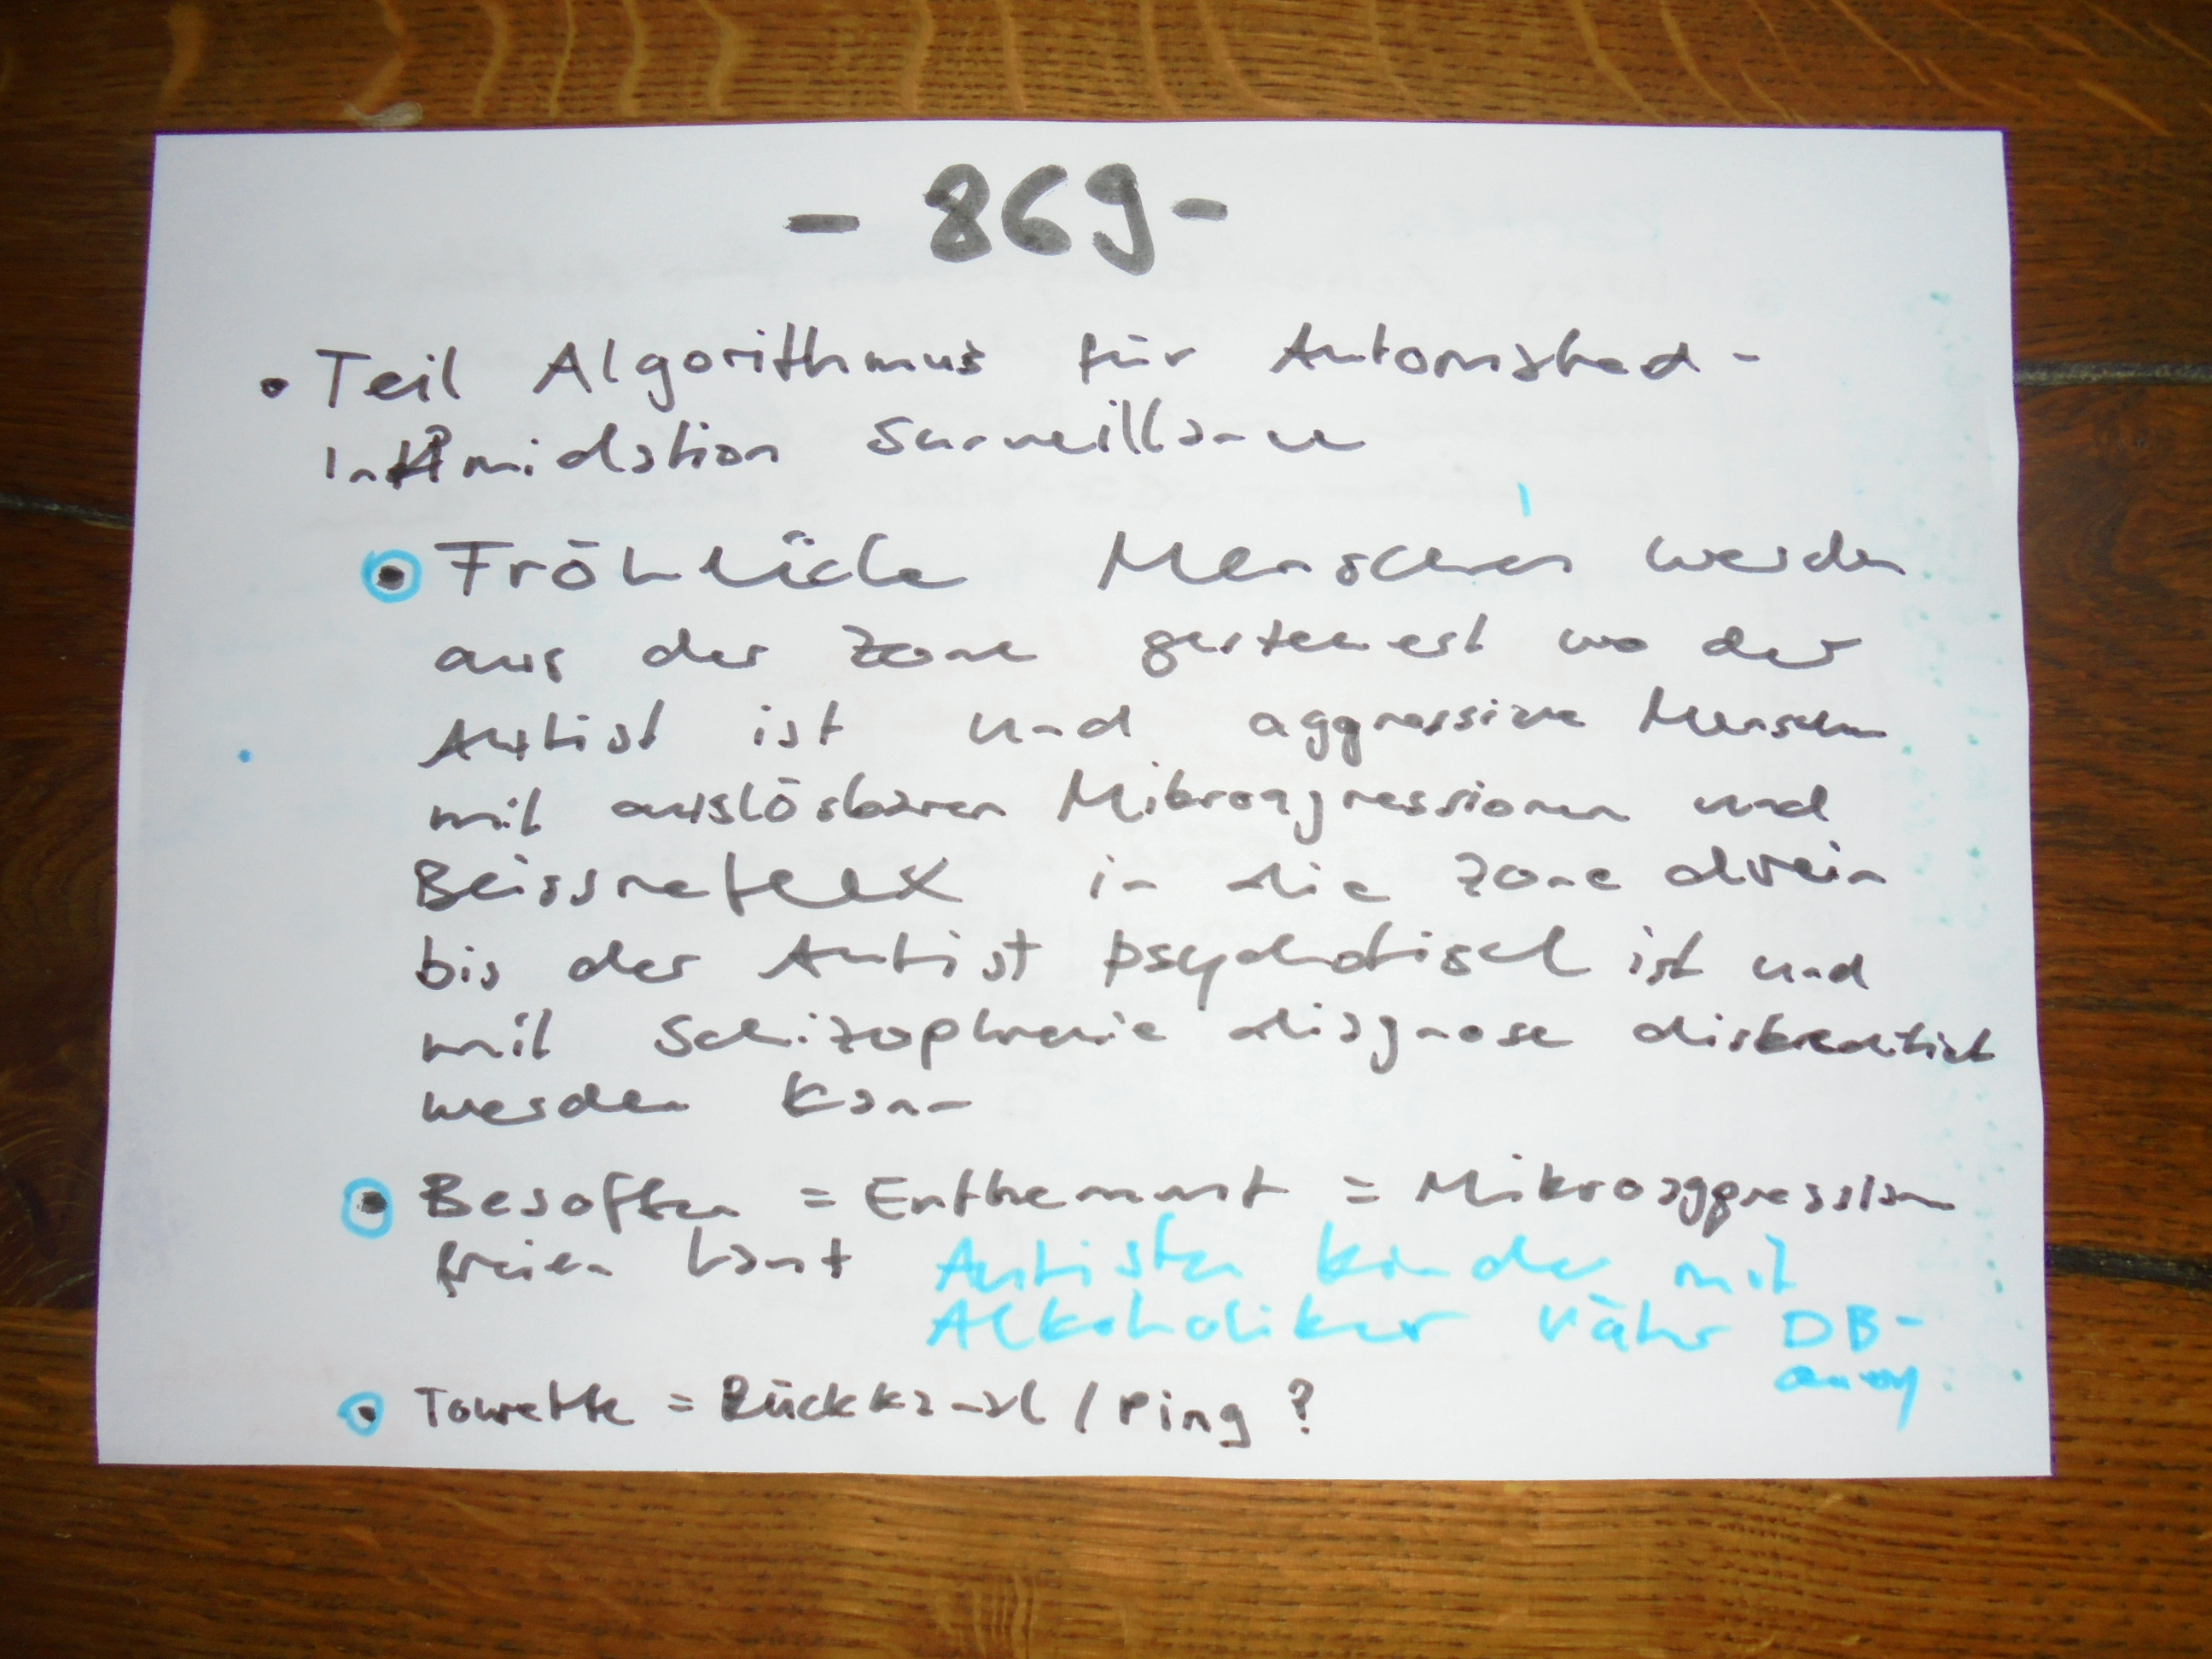 - 869 -
• Teil Algorithmus für Automated -
Intimidation Surveillance
• Fröhliche Menschen werden
aus der Zone gesteuert wo der
Autist ist und aggressive Menschen
mit auslösbaren Mikroaggressionen und
Beissreflex in die Zone drein
bis der Autist psychotisch ist und
mit Schizophrenie diagnose diskreditiert
werden kann
• Besoffen = Enthemmt = Mikroaggression
freien Lauf Autisten Kinder mit
Alkoholiker Väter DB-
• Tourette = Rückkanal / Ping ?